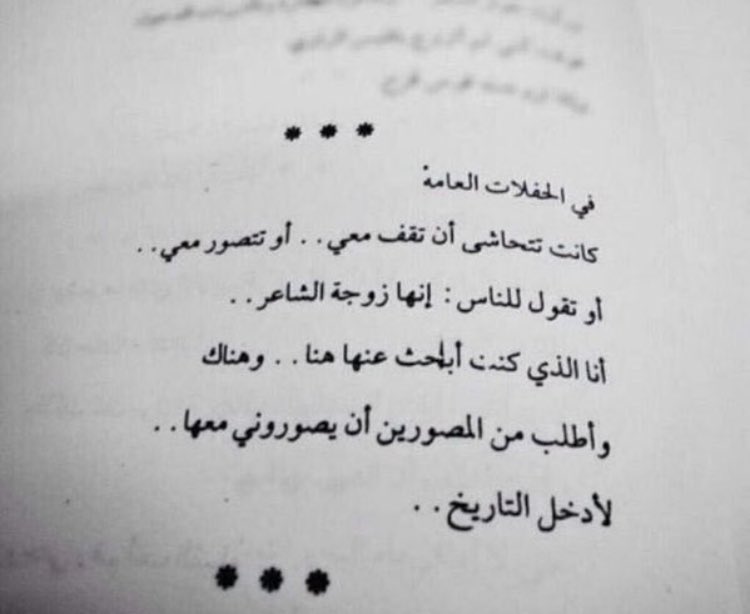 ***
في الحفلات العامة
كانت تتحاشى أن تقف معي.. أو تتصور معي..
أو تقول للناس: إنها زوجة الشاعر..
أنا الذي كنت أبحث عنها هنا.. وهناك
وأطلب من المصورين أن يصوروني معها..
لأدخل التاريخ..
***